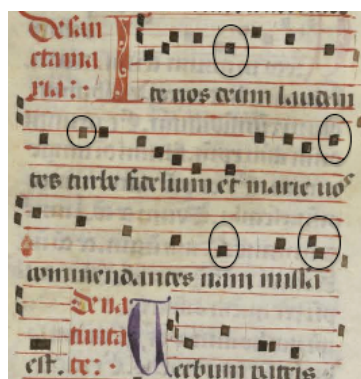 De san
ctama
ria: · Ite uos deum laudan
tes turbe fidelium et marie uos
commendantes nam missa
De na
tiuita
est. te: · Uerbum patris